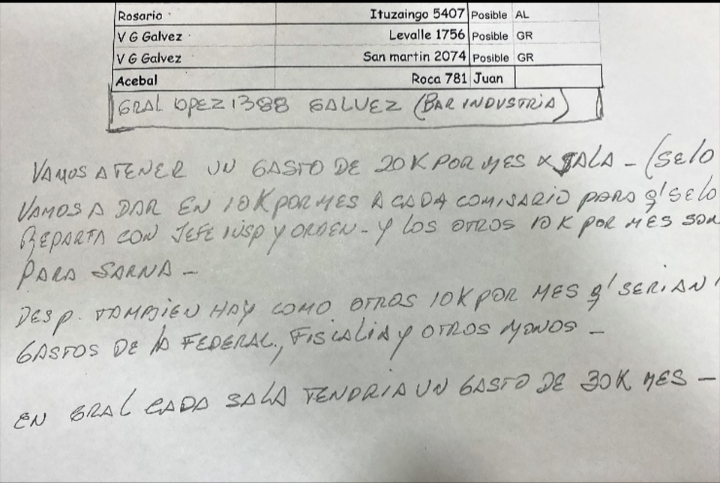 Rosario Ituzaingo 5407 Posible AL
V G Galvez Levalle 1756 Posible GR
V G Galvez San martin 2074 Posible GR
Acebal Roca 781 Juan
GRAL LOPEZ 1388 GALVEZ (BAR INDUSTRIA)
VAMOS A TENER UN GASTO DE 20K POR MES X SALA - (SE LO
VAMOS A DAR EN 10K POR MES A CADA COMISARIO PARA q' SE LO
REPARTA CON JEFE INSP Y ORDEN - Y LOS OTROS 10 K POR MES SON
PARA SARNA -
DESP. TAMBIEN HAY COMO OTROS 10K POR MES q' SERIAN
GASTOS DE LA FEDERAL, FISCALIA Y OTROS MONOS -
EN GRAL CADA SALA TENDRIA UN GASTO DE 30K MES -